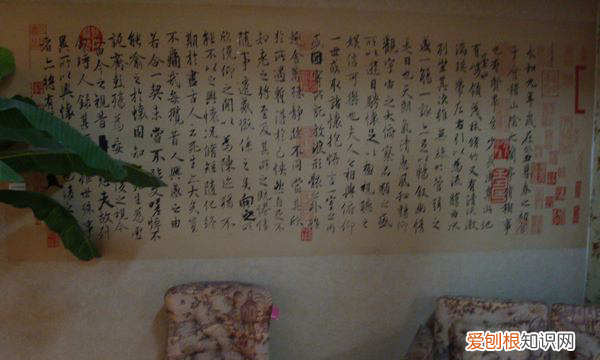 永和九年歲在癸丑暮春之初會
于會稽山陰之蘭亭脩禊事
也羣賢畢至少長咸集此地
有崇山峻領茂林脩竹又有清流激
湍暎帶左右引以為流觴曲水
列坐其次雖無絲竹管弦之
盛一觴一詠亦足以暢敘幽情
是日也天朗氣清惠風和暢仰
觀宇宙之大俯察品類之盛
所以遊目騁懷足以極視聽之
娛信可樂也夫人之相與俯仰
一世或取諸懷抱悟言一室之內
或因寄所託放浪形骸之外雖
趣舍萬殊靜躁不同當其欣
於所遇蹔得於己怏然自足不
知老之將至及其所之既惓情
隨事遷感慨係之矣向之
欣俛仰之間以為陳迹猶不
能不以之興懷況脩短隨化終
期於盡古人云死生亦大矣豈
不痛哉每攬昔人興感之由
若合一契未嘗不臨文嗟悼不
能喻之於懷固知一死生為虛
誕齊彭殤為妄後之視今
今之視昔悲夫故列
叙時人錄其世殊事
異所以興懷後之
者亦將有
爱刨根知识网